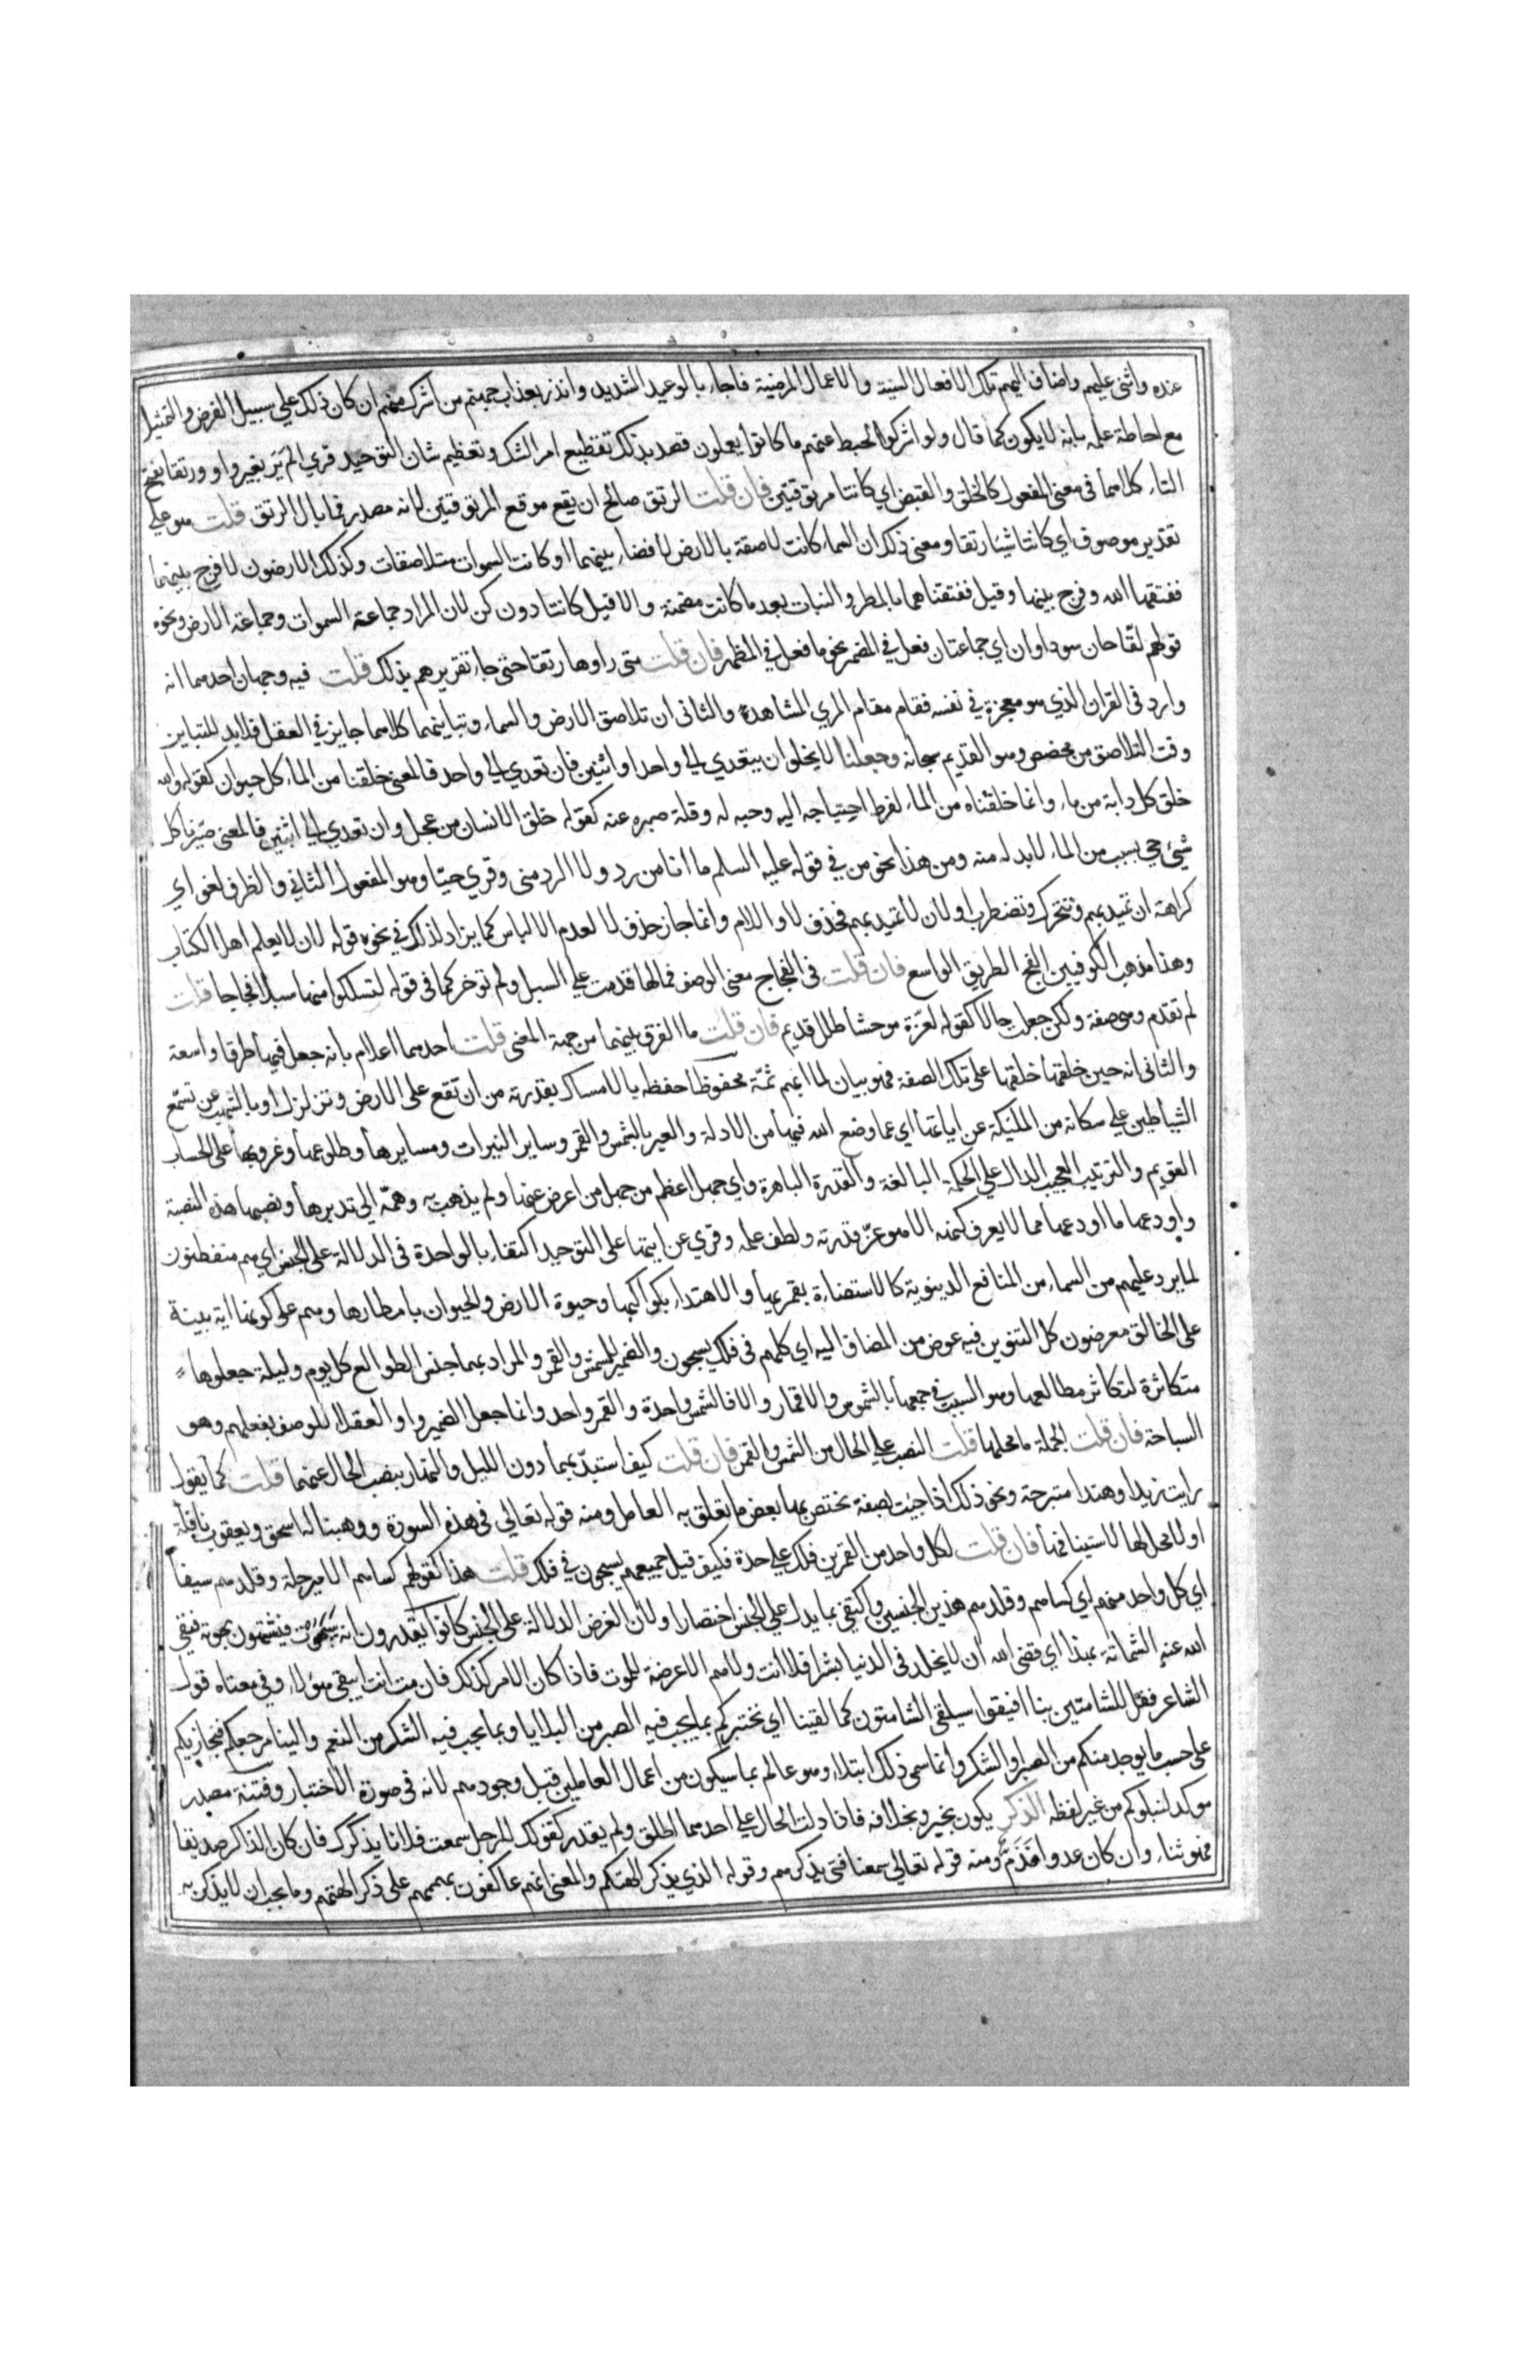 عنده واثنى عليهم واضاف اليهم تلك الافعال السنية والاعمال المرضية فاجاء بالوعيد الشديد وانذر بعذاب جهنم من اشرك منهم ان كان ذلك على سبيل الفرض والتمثيل
مع احاطة علمه بانه لا يكون كما قال ولو اشركوا لحبط عنهم ما كانوا يعملون قصد بذلك تفظيع امر الشرك وتعظيم شان التوحيد قري الم تر بغير واو ورتقا بفتح
التاء كلاهما في معنى المفعول كالخلق والقبض اي كانتا مرتوقتين فان قلت الرتق صالح ان يقع موقع المرتوقتين لانه مصدر فما بال الرتق قلت هو على
تقدير موصوف اي كانتا شيئا رتقا ومعنى ذلك ان السماء كانت لاصقة بالارض لا فضاء بينهما او كانت السموات متلاصقات وكذلك الارضون لا فرج بينهما
ففتقها الله وفرج بينها وقيل ففتقناهما بالمطر والنبات بعد ما كانت مصمتة والا قيل كانتا دون كن لان المراد جماعة السموات وجماعة الارض ونحوه
قولهم لقاحان سوداوان اي جماعتان فعل في المضمر نحو ما فعل في المظهر فان قلت متى راوها رتقا حتى جاء تقريرهم بذلك قلت فيه وجهان احدهما انه
وارد في القران الذي هو معجزة في نفسه فقام مقام المري المشاهد والثاني ان تلاصق الارض والسماء وتباينهما كلاهما جايز في العقل فلابد للتباين
وقت التلاصق من مخصص وهو القديم سبحانه وجعلنا لا يخلو ان يتعدي الي واحد او اثنين فان تعدي الي واحد فالمعنى خلقنا من الماء كل حيوان كقوله والله
خلق كل دابة من ماء وانما خلقناه من الماء لفرط احتياجه اليه وحبه له وقلة صبره عنه كقوله خلق الانسان من عجل وان تعدي الي اثنين فالمعنى صيرنا كل
شيئ حي بسبب من الماء لابد له منه ومن هذا نحو من في قوله عليه السلم ما انا من رد ولا الرد منى وقري حيا وهو المفعول الثاني والظرف لغو اي
كراهة ان تميد بهم وتتحرك وتضطرب او لان لا تميد بهم فحذف لا واللام وانما جاز حذف لا لعدم الالباس كما يزاد لذلك في نحوه قوله لان لا يعلم اهل الكتاب
وهذا مذهب الكوفيين الفج الطريق الواسع فان قلت في الفجاج معنى الوصف فمالها قدمت على السبل ولم توخر كما في قوله لتسلكوا منها سبلا فجاجا قلت
لم تقدم وهي صفة ولكن جعلت حالا كقوله لعزة موحشا طلل قديم فان قلت ما الفرق بينهما من جهة المعنى قلت احدهما اعلام بانه جعل فيها طرقا واسعة
والثاني انه حين خلقها خلقها على تلك الصفة فهو بيان لما ابهم ثمة محفوظا حفظه بالامساك بقدرته من ان تقع على الارض وتتزلزل او بالشهب عن تسمع
الشياطين على سكانه من المليكة عن اياتها اي عما وضع الله فيها من الادلة والعبر بالشمس والقمر وساير النيرات ومسايرها وطلوعها وغروبها على الحساب
القويم والترتيب العجيب الدال على الحكمة البالغة والقدرة الباهرة واي جهل اعظم من جهل من اعرض عنها ولم يذهب به وهمه الي تدبرها ونصبها هذه النصبة
واودعها ما اودعها مما لا يعرف كنهه الا هو عز قدرته ولطف علمه وقري عن ايتها على التوحيد اكتفاء بالواحدة في الدلالة على الجنس اي هم متفطنون
لما يرد عليهم من السماء من المنافع الدينوية كالاستضاءة بقمريها والاهتداء بكواكبها وحيوة الارض والحيوان بامطارها وهم على كونها اية بينة
على الخالق معرضون كل التنوين فيه عوض من المضاف اليه اي كلهم في فلك يسبحون والضمير للشمس والقمر والمراد بهما جنس الطوالع كل يوم وليلة جعلوها
متكاثرة لتكاثر مطالعها وهو السبب في جمعها بالشموس والاقمار والا فالشمس واحدة والقمر واحد وانما جعل الضمير واو العقلا للوصف بفعلهم وهو
السباحة فان قلت الجملة ما محلها قلت النصب على الحال من الشمس والقمر فان قلت كيف استبد بهما دون الليل والنهار بنصب الحال عنهما قلت كما يقول
رايت زيدا وهندا متبرجة ونحو ذلك اذا جيت بصفة تختص بها بعض ما تعلق به العامل ومنه قوله تعالي في هذه السورة ووهبنا له اسحق ويعقوب نافلة
او لا محل لها لاستينافها فان قلت لكل واحد من القمرين فلك على حدة فكيف قيل جميعهم يسبحون في فلك قلت هذا كقولهم كساهم الامير حلة وقلدهم سيفا
اي كل واحد منهم اي كساهم وقلدهم هذين الجنسين واكتفي بما يدل على الجنس اختصارا ولان الغرض الدلالة على الجنس كانوا يقدرون انه سيموت فيشمتون بموته فنفي
الله عنه الشماتة بهذا اي قضى الله ان لا يخلد في الدنيا بشرا فلا انت ولا هم الا عرضة للموت فاذا كان الامر كذلك فان مت انت ايبقى هؤلاء وفي معناه قول
الشاعر فقل للشامتين بنا افيقوا سيلقى الشامتون كما لقينا اي نختبركم بما يجب فيه الصبر من البلايا وبما يجب فيه الشكر من النعم والينا مرجعكم فنجازيكم
على حسب ما يوجد منكم من الصبر او الشكر وانما سمى ذلك ابتلاء وهو عالم بما سيكون من اعمال العاملين قبل وجودهم لانه في صورة الاختبار وفتنة مصدر
موكد لنبلوكم من غير لفظه الذكر يكون بخير وبخلافه فاذا دلت الحال على احدهما اطلق ولم يقدر كقولك للرجل سمعت فلانا يذكرك فان كان الذاكر صديقا
فهو ثناء وان كان عدوا فذم ومنه قوله تعالي سمعنا فتى يذكرهم وقوله الذي يذكر الهتكم والمعنى انهم عاكفون بهممهم على ذكر الهتهم وما يجب ان لا يذكر به